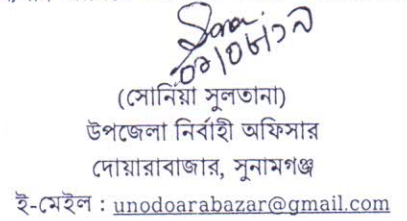 (সোনিয়া সুলতানা)
উপজেলা নির্বাহী অফিসার
দোয়ারাবাজার, সুনামগঞ্জ
ই-মেইল : unodoarabazar@gmail.com